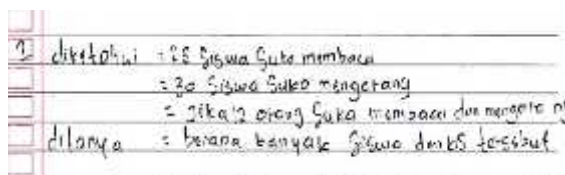 1 diketahui = 25 siswa suka membaca
= 30 siswa suka mengerang
= jika 12 orang suka membaca dan mengera
ditanya = berapa banyak siswa